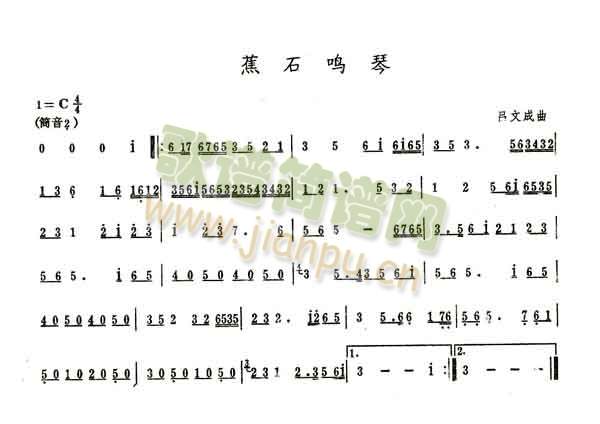 蕉石鸣琴
1=C 4/4
(筒音2) 吕文成曲
0 0 0 i ‖: 6 17 6765 3 5 2 1 | 3 5 6 i 6i65 | 3 5 3. 563432
1 3 6 1 6 1612 | 3561565323543432 | 1 2 1. 5 3 2 | 1 2 56i 6535
2 3 1 2 i 2 3 | 1 2 3 7. 6 | 5 6 5 — 6765 | 3. 56i21 2 3
5 6 5. i 6 5 | 4 0 5 0 4 0 5 0 | 3 5. 4 3 5 6 i | 5 6 5. i 6 5
4 0 5 0 4 0 5 0 | 3 5 2 3 2 6535 | 2 3 2. i265 | 3 5. 6 6 1 76 | 5 6 5. 7 6 1
5 0 1 0 2 0 5 0 | 3 0 5 0 1 0 5 0 | 2 3 1 2. 3 5 6 i | 1. 3 — — i :‖ 2. 3 — — —
歌谱简谱网
www.jianpu.cn